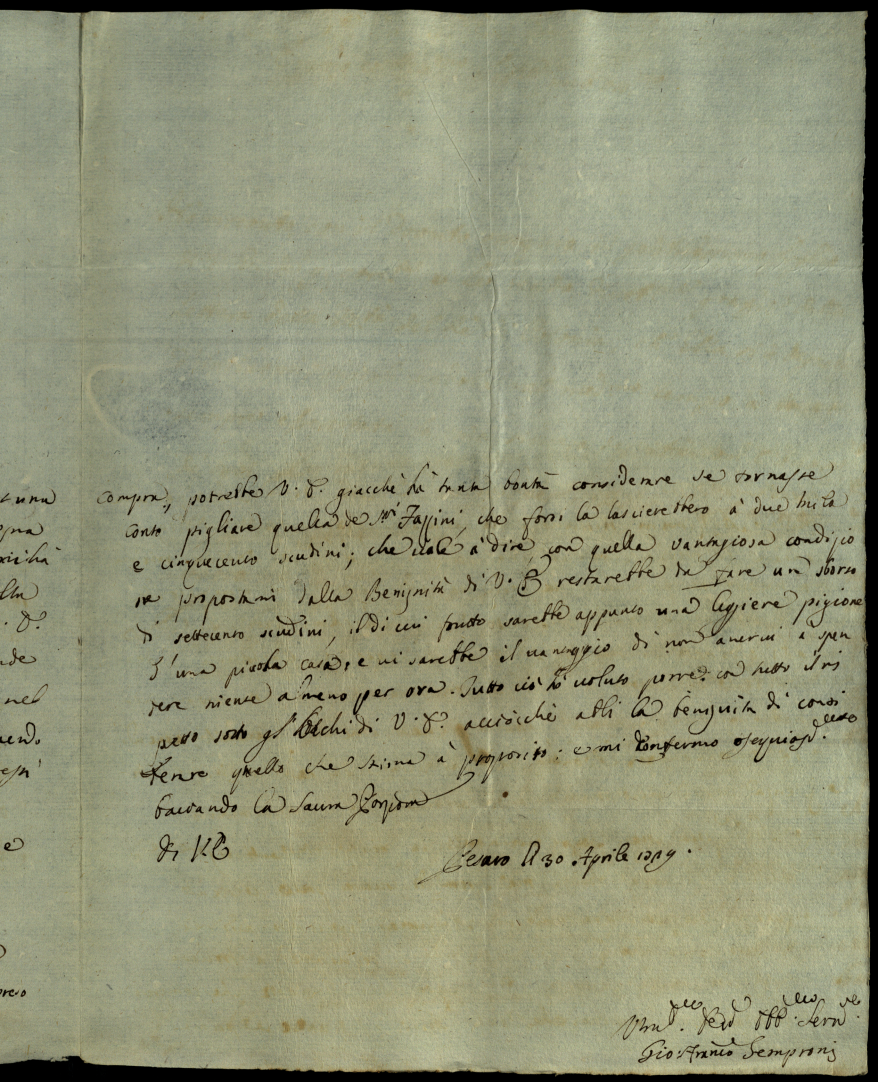 compra, potrebbe V. E. giacchè hà tanta bontà considerare se tornasse
conto pigliare quella de Sri Fazzini, che forsi la lascierebbero à due mila
e cinquecento scudini; che viale à dire, con quella vantagiosa condizio
ne propostami dalla Benignità di V. E. restarebbe da fare un sborso
di settecento scudini, il di cui frutto sarebbe appunto una leggiere pigione
d'una picola casa, e ui sarebbe il uantaggio di non auerui à spen
dere niente almeno per ora. Tutto ciò hò uoluto porre con tutto il ris
petto sotto gl'occhi di V. E. acciòcchè abbi la benignità di consi
derare quello che stima à proposito: e mi confermo
bacciando la Sacra Porpora
di V. E.
Pesaro li 30 Aprile
Umil.mo Obb.mo
Gio: Franco Semproni
una
nel
e